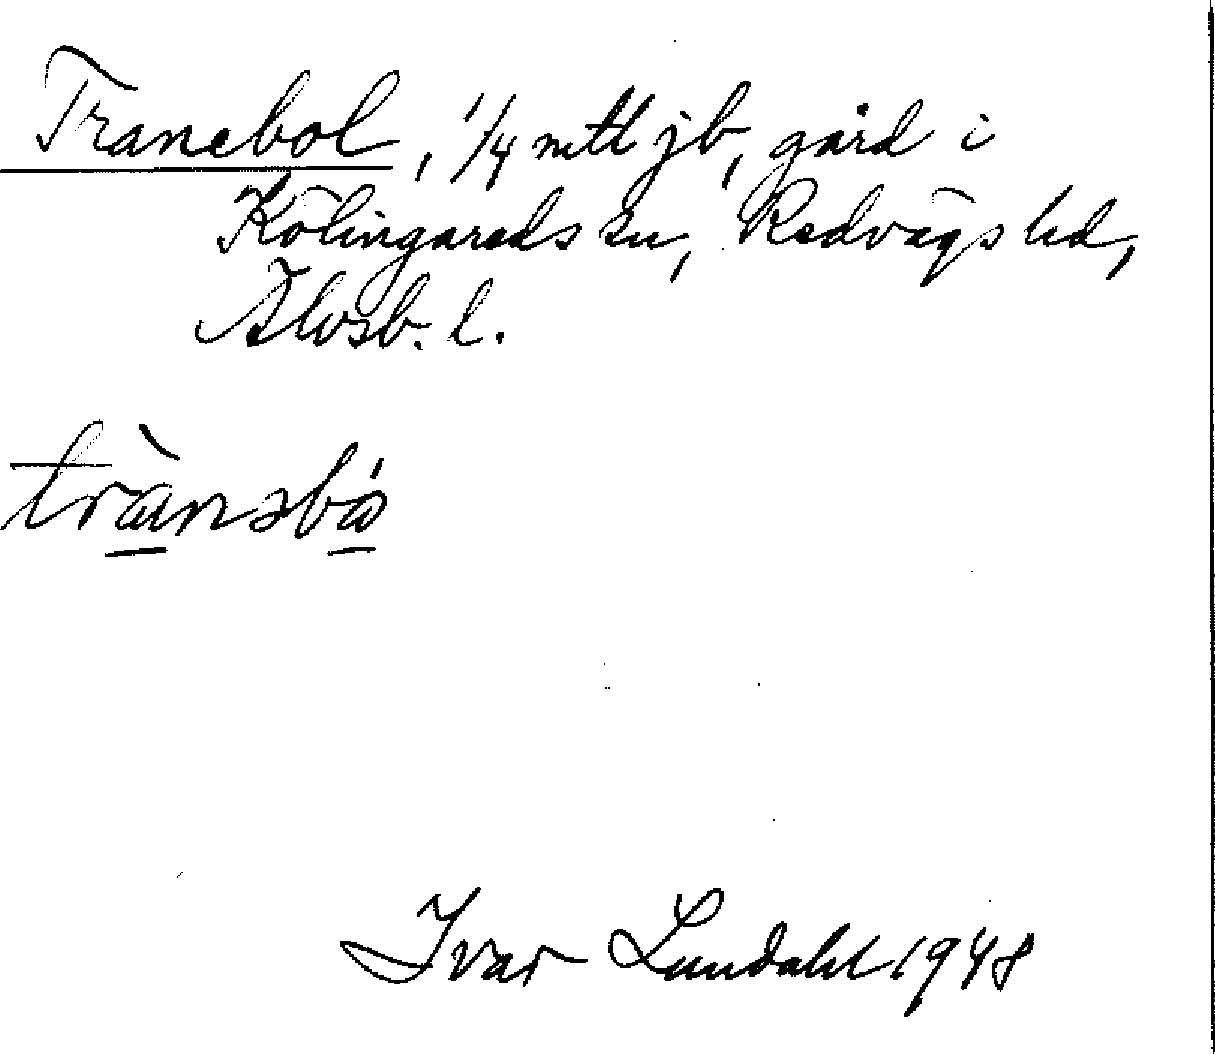 Tranebol, 1/4 mtl jb, gård i
Kölingareds sn, Redvägs hd,
Älvsb. l.
trànəbó
Ivar Lundahl 1948